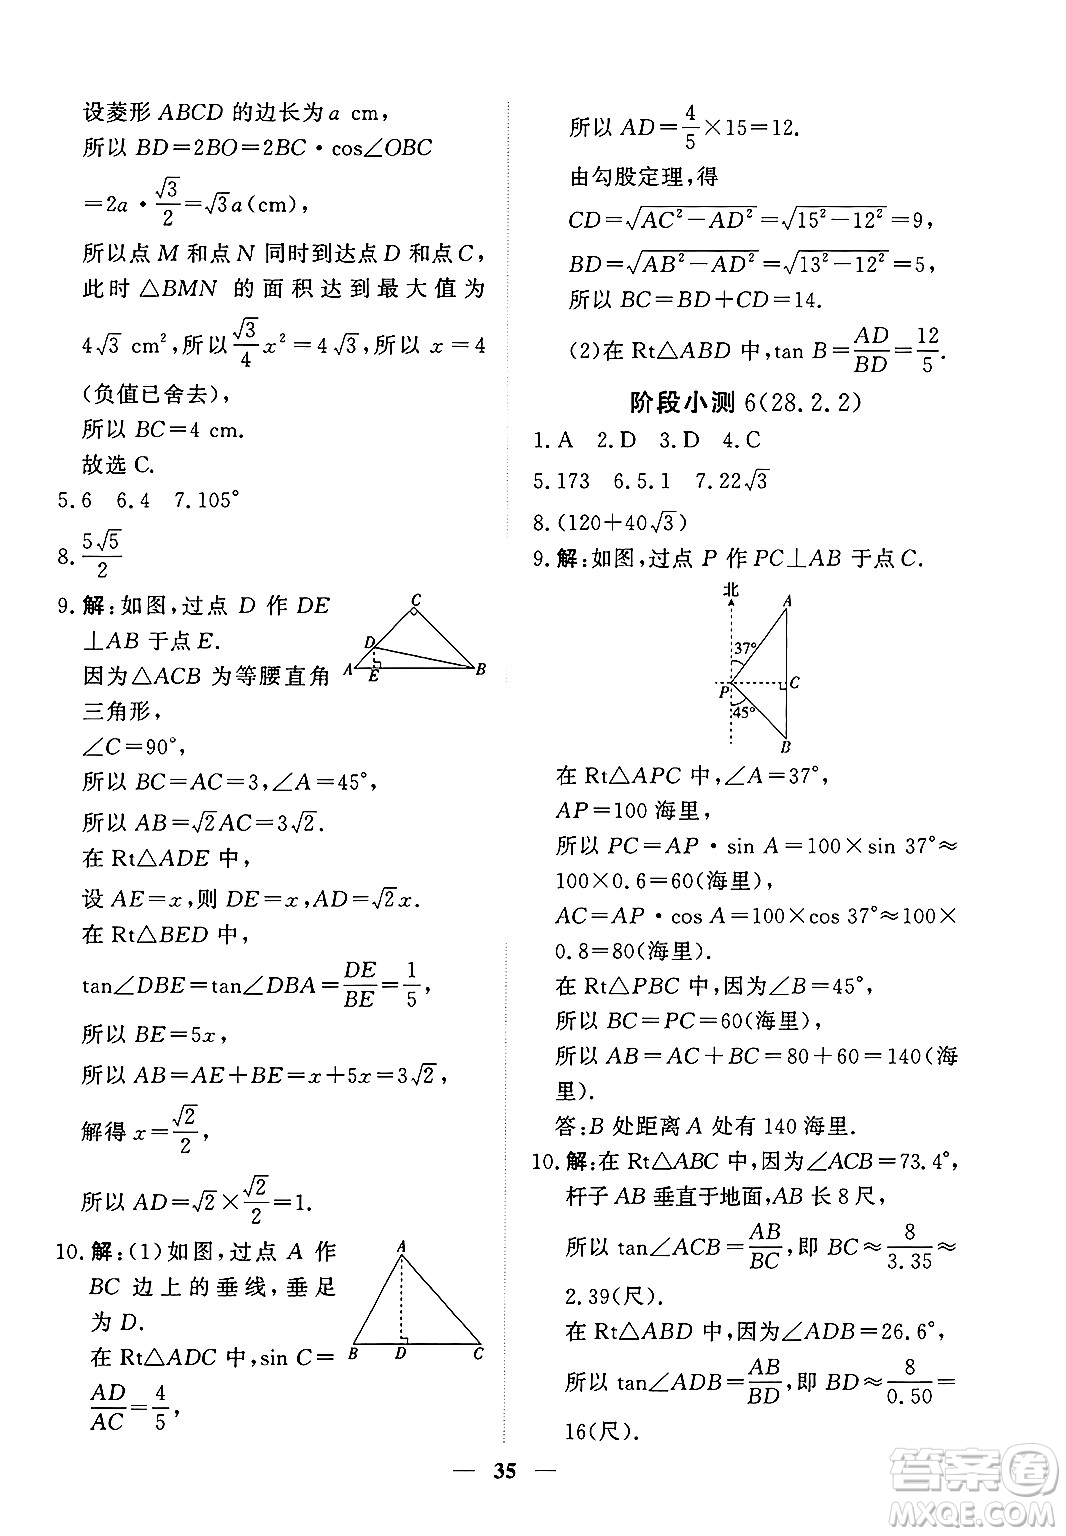 设菱形 ABCD 的边长为 a cm,
所以 BD=2BO=2BC·cos∠OBC
=2a·√3/2=√3a(cm),
所以点 M 和点 N 同时到达点 D 和点 C,
此时 △BMN 的面积达到最大值为
4√3 cm²,所以 √3/4 x²=4√3,所以 x=4
(负值已舍去),
所以 BC=4 cm.
故选 C.
5.6 6.4 7.105°
8. 5√5/2
9.解:如图,过点 D 作 DE
⊥AB 于点 E.
因为△ACB 为等腰直角
三角形,
∠C=90°,
所以 BC=AC=3,∠A=45°,
所以 AB=√2AC=3√2.
在 Rt△ADE 中,
设 AE=x,则 DE=x,AD=√2x.
在 Rt△BED 中,
tan∠DBE=tan∠DBA=DE/BE=1/5,
所以 BE=5x,
所以 AB=AE+BE=x+5x=3√2,
解得 x=√2/2,
所以 AD=√2×√2/2=1.
10.解:(1)如图,过点 A 作
BC 边上的垂线,垂足
为 D.
在 Rt△ADC 中,sin C=
AD/AC=4/5,
C
D
A
E
B
A
B
D
C
所以 AD=4/5×15=12.
由勾股定理,得
CD=√(AC²-AD²)=√(15²-12²)=9,
BD=√(AB²-AD²)=√(13²-12²)=5,
所以 BC=BD+CD=14.
(2)在 Rt△ABD 中,tan B=AD/BD=12/5.
阶段小测 6(28.2.2)
1.A 2.D 3.D 4.C
5.173 6.5.1 7.22√3
8.(120+40√3)
9.解:如图,过点 P 作 PC⊥AB 于点 C.
北
A
37°
P
C
45°
B
在 Rt△APC 中,∠A=37°,
AP=100 海里,
所以 PC=AP·sin A=100×sin 37°≈
100×0.6=60(海里),
AC=AP·cos A=100×cos 37°≈100×
0.8=80(海里).
在 Rt△PBC 中,因为∠B=45°,
所以 BC=PC=60(海里),
所以 AB=AC+BC=80+60=140(海
里).
答:B 处距离 A 处有 140 海里.
10.解:在 Rt△ABC 中,因为∠ACB=73.4°,
杆子 AB 垂直于地面,AB 长 8 尺,
所以 tan∠ACB=AB/BC,即 BC≈8/3.35≈
2.39(尺).
在 Rt△ABD 中,因为∠ADB=26.6°,
所以 tan∠ADB=AB/BD,即 BD≈8/0.50=
16(尺).
— 35 —
答案圈
MXQE.COM